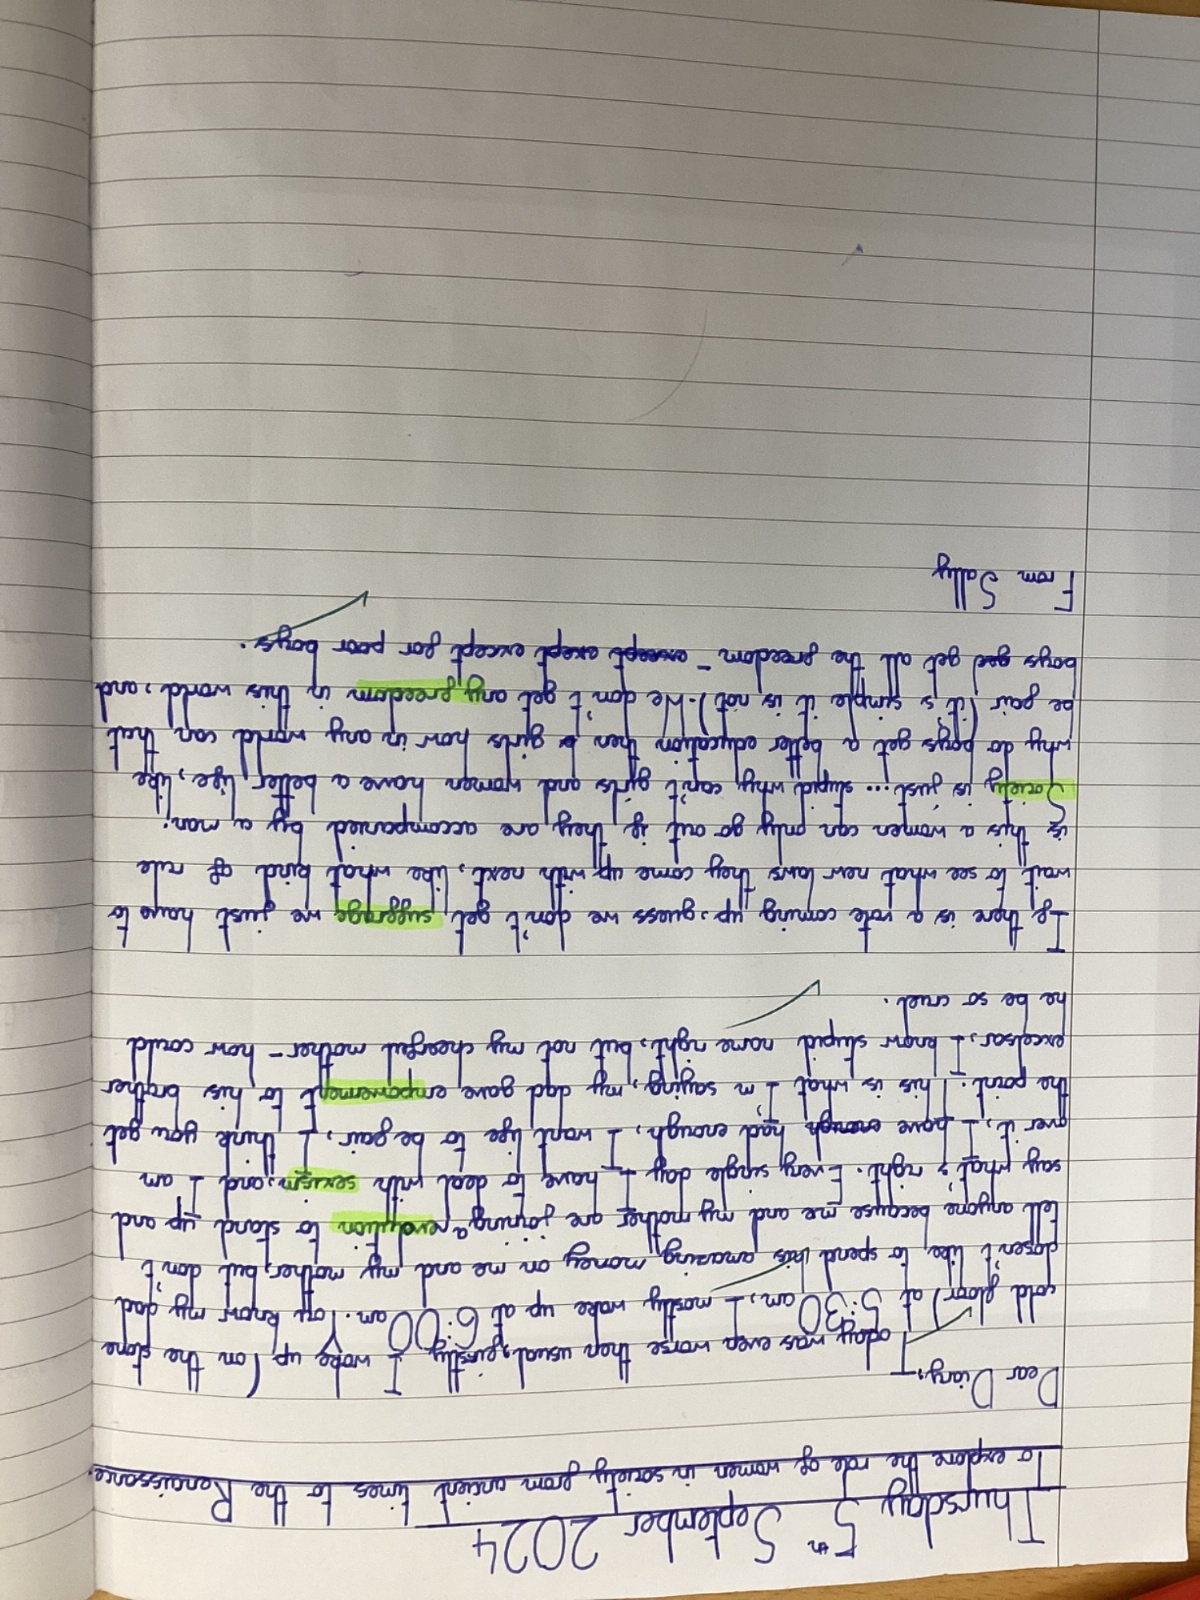 Thursday 5th September 2024
To explore the role of women in society from ancient times to the Renaissance.
Dear Diary,
Today was even worse then usual, firstly I woke up (on the stone
cold floor) at 5:30 am, I mostly wake up at 6:00 am. You know my dad
dosen't like to spend his amazing money on me and my mother, but don't
tell anyone because me and my mother are joining a revolution to stand up and
say what's right. Every single day I have to deal with sexism, and I am
over it, I have enough had enough, I want life to be fair, I think you get
the point. This is what I'm saying, my dad gave empowerment to his brother
excelsor, I know stupid name right, but not my cheerful mother - how could
he be so cruel.
If there is a vote coming up, guess we don't get suffrage we just have to
wait to see what new laws they come up with next, like what kind of rule
is this a women can only go out if they are accompanied by a man.
Society is just... stupid why can't girls and women have a better life, like
why do boys get a better education then girls how in any world can that
be fair (it's simple it is not). We don't get any freedom in this world, and
boys get all the freedom - except exept except for poor boys.
From Sally